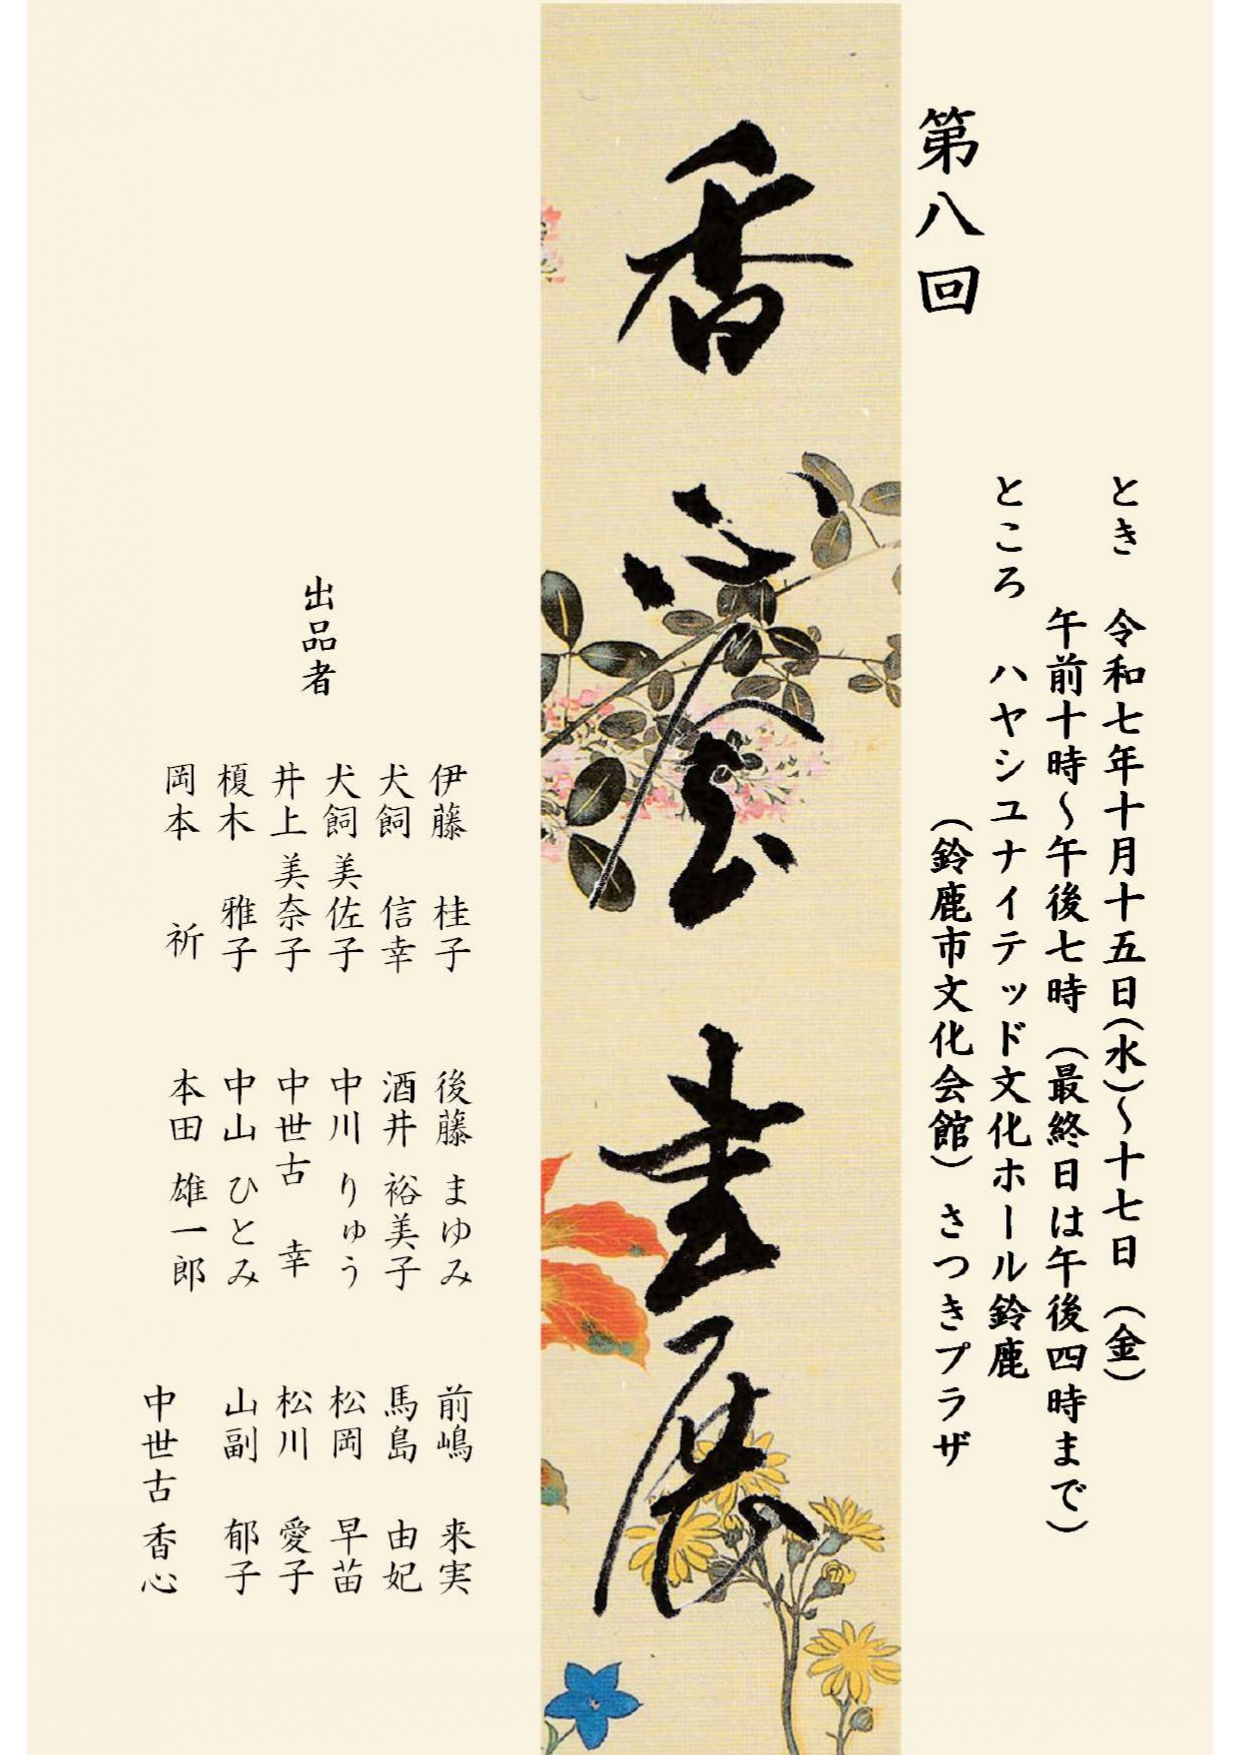 とき　令和七年十月十五日(水)～十七日（金）
午前十時～午後七時（最終日は午後四時まで）
ところ　ハヤシユナイテッド文化ホール鈴鹿
（鈴鹿市文化会館）さつきプラザ
第八回
香心會書展
出品者
伊藤　桂子
犬飼　信幸
犬飼　美佐子
井上　美奈子
榎木　雅子
岡本　祈
後藤　まゆみ
酒井　裕美子
中川　りゅう
中世古　幸
中山　ひとみ
本田　雄一郎
前嶋　来実
馬島　由妃
松岡　早苗
松川　愛子
山副　郁子
中世古　香心